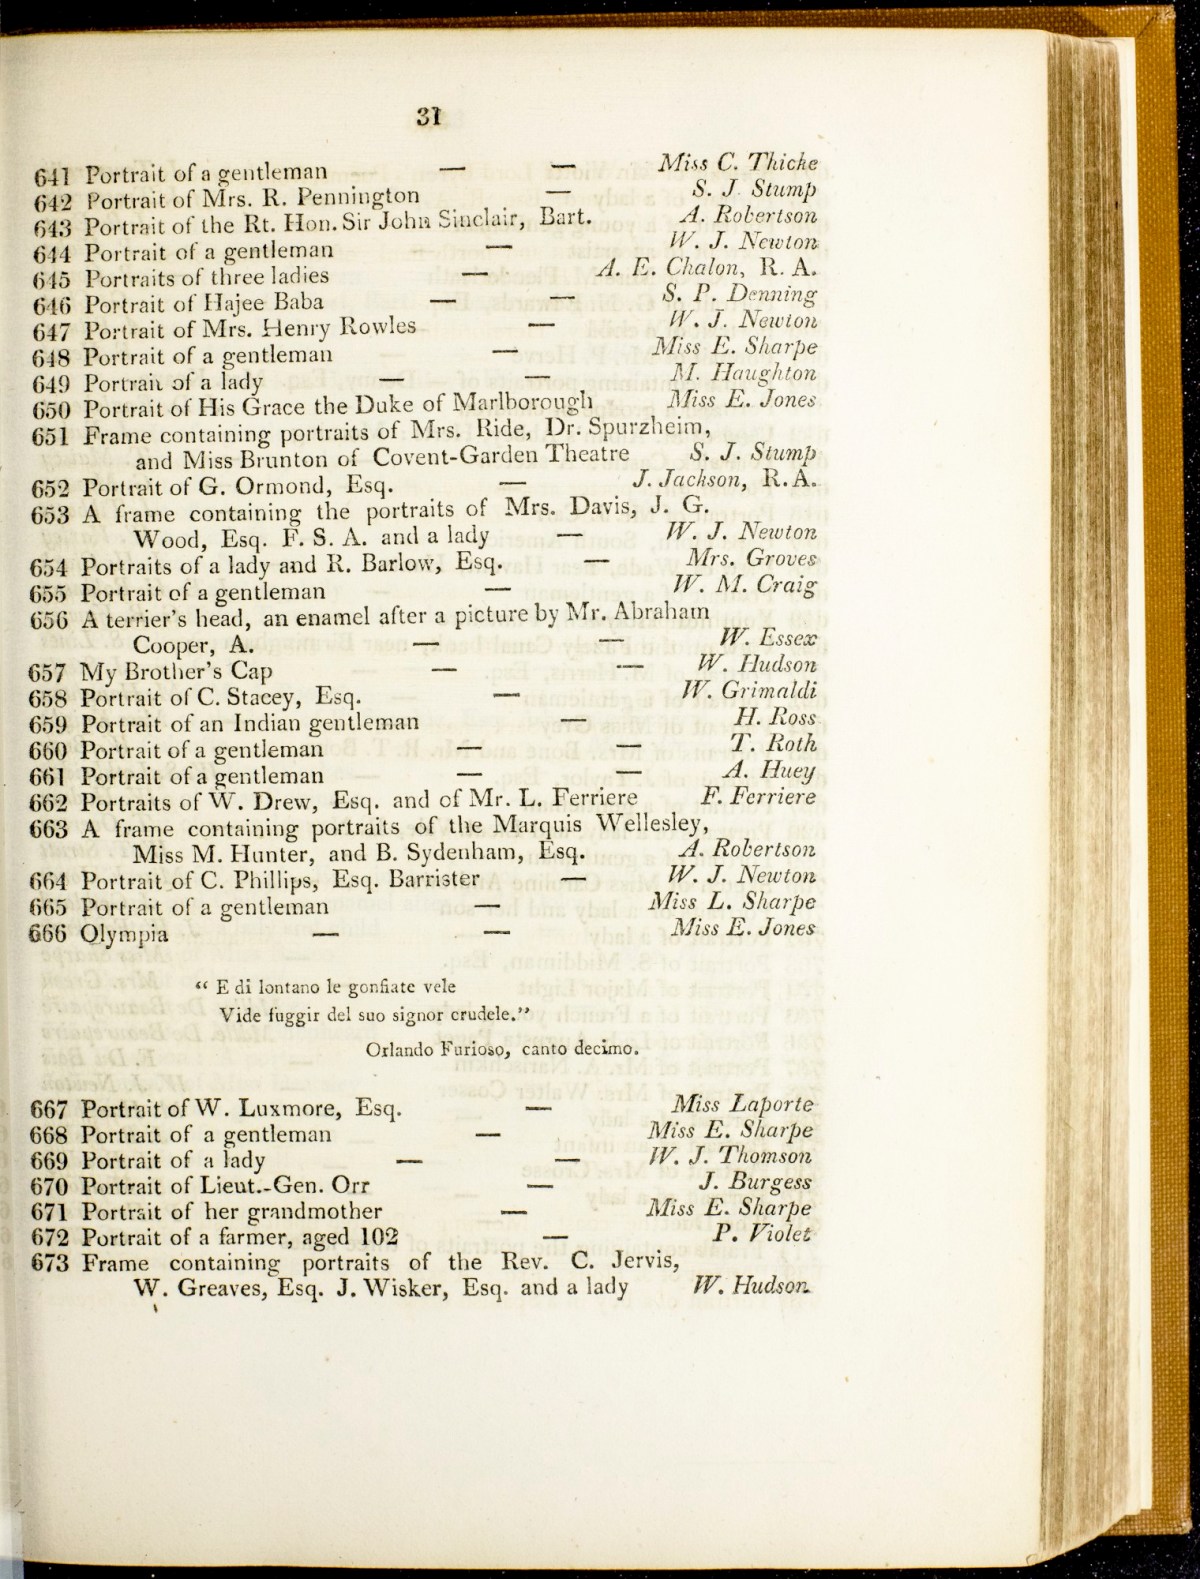 31
641 Portrait of a gentleman — — Miss C. Thicke
642 Portrait of Mrs. R. Pennington — S. J. Stump
643 Portrait of the Rt. Hon. Sir John Sinclair, Bart. A. Robertson
644 Portrait of a gentleman — W. J. Newton
645 Portraits of three ladies — A. E. Chalon, R. A.
646 Portrait of Hajee Baba — — S. P. Denning
647 Portrait of Mrs. Henry Rowles — W. J. Newton
648 Portrait of a gentleman — Miss E. Sharpe
649 Portrait of a lady — — M. Haughton
650 Portrait of His Grace the Duke of Marlborough Miss E. Jones
651 Frame containing portraits of Mrs. Ride, Dr. Spurzheim,
and Miss Brunton of Covent-Garden Theatre S. J. Stump
652 Portrait of G. Ormond, Esq. — J. Jackson, R. A.
653 A frame containing the portraits of Mrs. Davis, J. G.
Wood, Esq. F. S. A. and a lady — W. J. Newton
654 Portraits of a lady and R. Barlow, Esq. — Mrs. Groves
655 Portrait of a gentleman — W. M. Craig
656 A terrier's head, an enamel after a picture by Mr. Abraham
Cooper, A. — — W. Essex
657 My Brother's Cap — — W. Hudson
658 Portrait of C. Stacey, Esq. — W. Grimaldi
659 Portrait of an Indian gentleman — H. Ross
660 Portrait of a gentleman — — T. Roth
661 Portrait of a gentleman — — A. Huey
662 Portraits of W. Drew, Esq. and of Mr. L. Ferriere F. Ferriere
663 A frame containing portraits of the Marquis Wellesley,
Miss M. Hunter, and B. Sydenham, Esq. A. Robertson
664 Portrait of C. Phillips, Esq. Barrister — W. J. Newton
665 Portrait of a gentleman — Miss L. Sharpe
666 Olympia — — Miss E. Jones
“ E di lontano le gonfiate vele
Vide fuggir del suo signor crudele.”
Orlando Furioso, canto decimo.
667 Portrait of W. Luxmore, Esq. — Miss Laporte
668 Portrait of a gentleman — Miss E. Sharpe
669 Portrait of a lady — — W. J. Thomson
670 Portrait of Lieut.-Gen. Orr — J. Burgess
671 Portrait of her grandmother — Miss E. Sharpe
672 Portrait of a farmer, aged 102 — P. Violet
673 Frame containing portraits of the Rev. C. Jervis,
W. Greaves, Esq. J. Wisker, Esq. and a lady W. Hudson